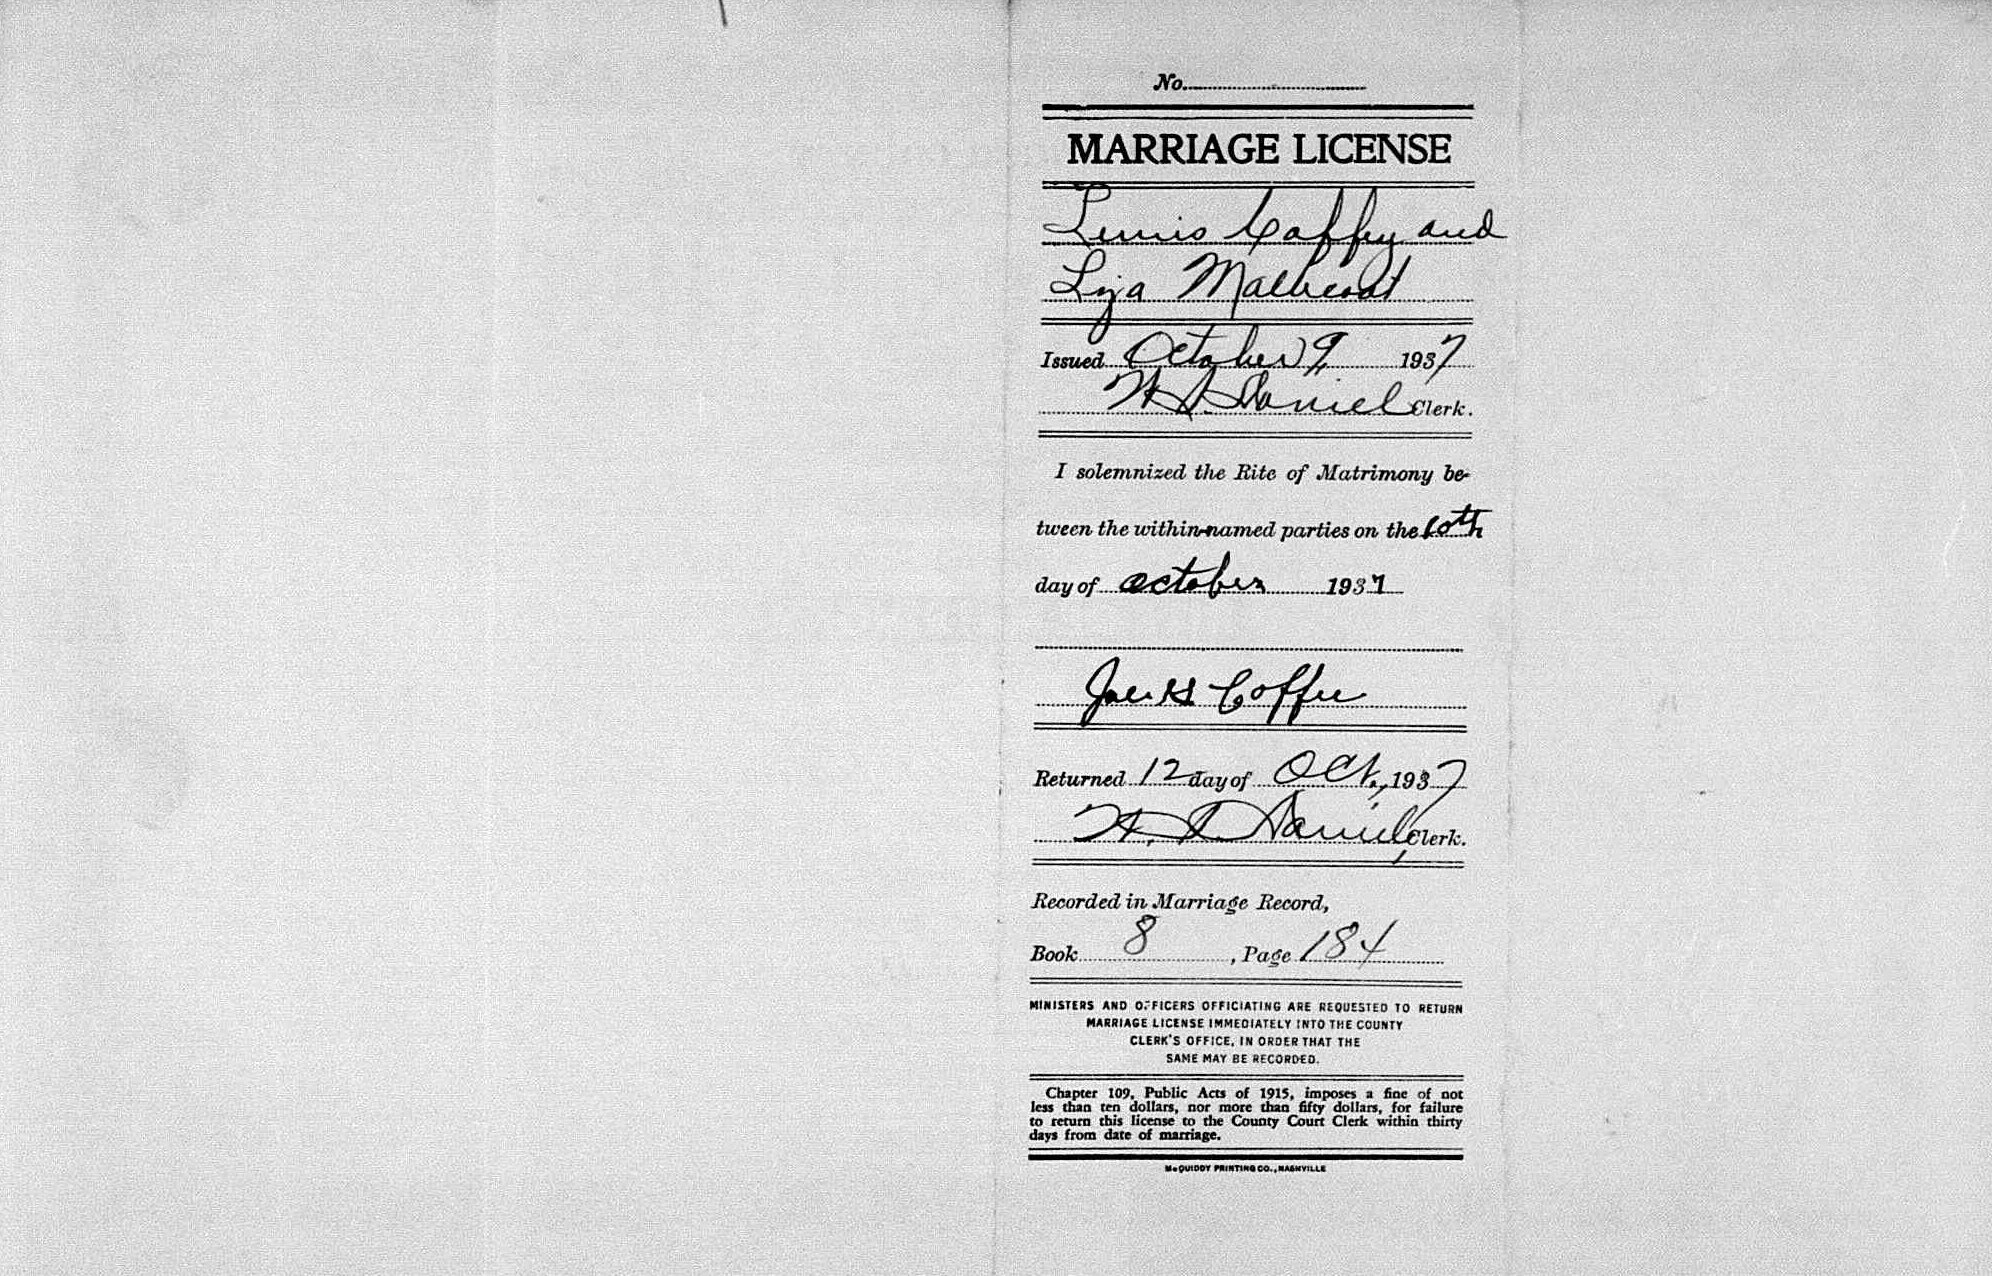 No.
MARRIAGE LICENSE
Lennis Coffey and
Liza Mallicoat
Issued October 9, 1937
W. S. Daniel Clerk.
I solemnized the Rite of Matrimony be-
tween the within-named parties on the 10th
day of october 1937
Coffee
Returned 12 day of Oct., 1937
W. S. Daniel, Clerk.
Recorded in Marriage Record,
Book 8, Page 184
MINISTERS AND OFFICERS OFFICIATING ARE REQUESTED TO RETURN
MARRIAGE LICENSE IMMEDIATELY INTO THE COUNTY
CLERK'S OFFICE, IN ORDER THAT THE
SAME MAY BE RECORDED.
Chapter 109, Public Acts of 1915, imposes a fine of not
less than ten dollars, nor more than fifty dollars, for failure
to return this license to the County Court Clerk within thirty
days from date of marriage.
McQUIDDY PRINTING CO., NASHVILLE